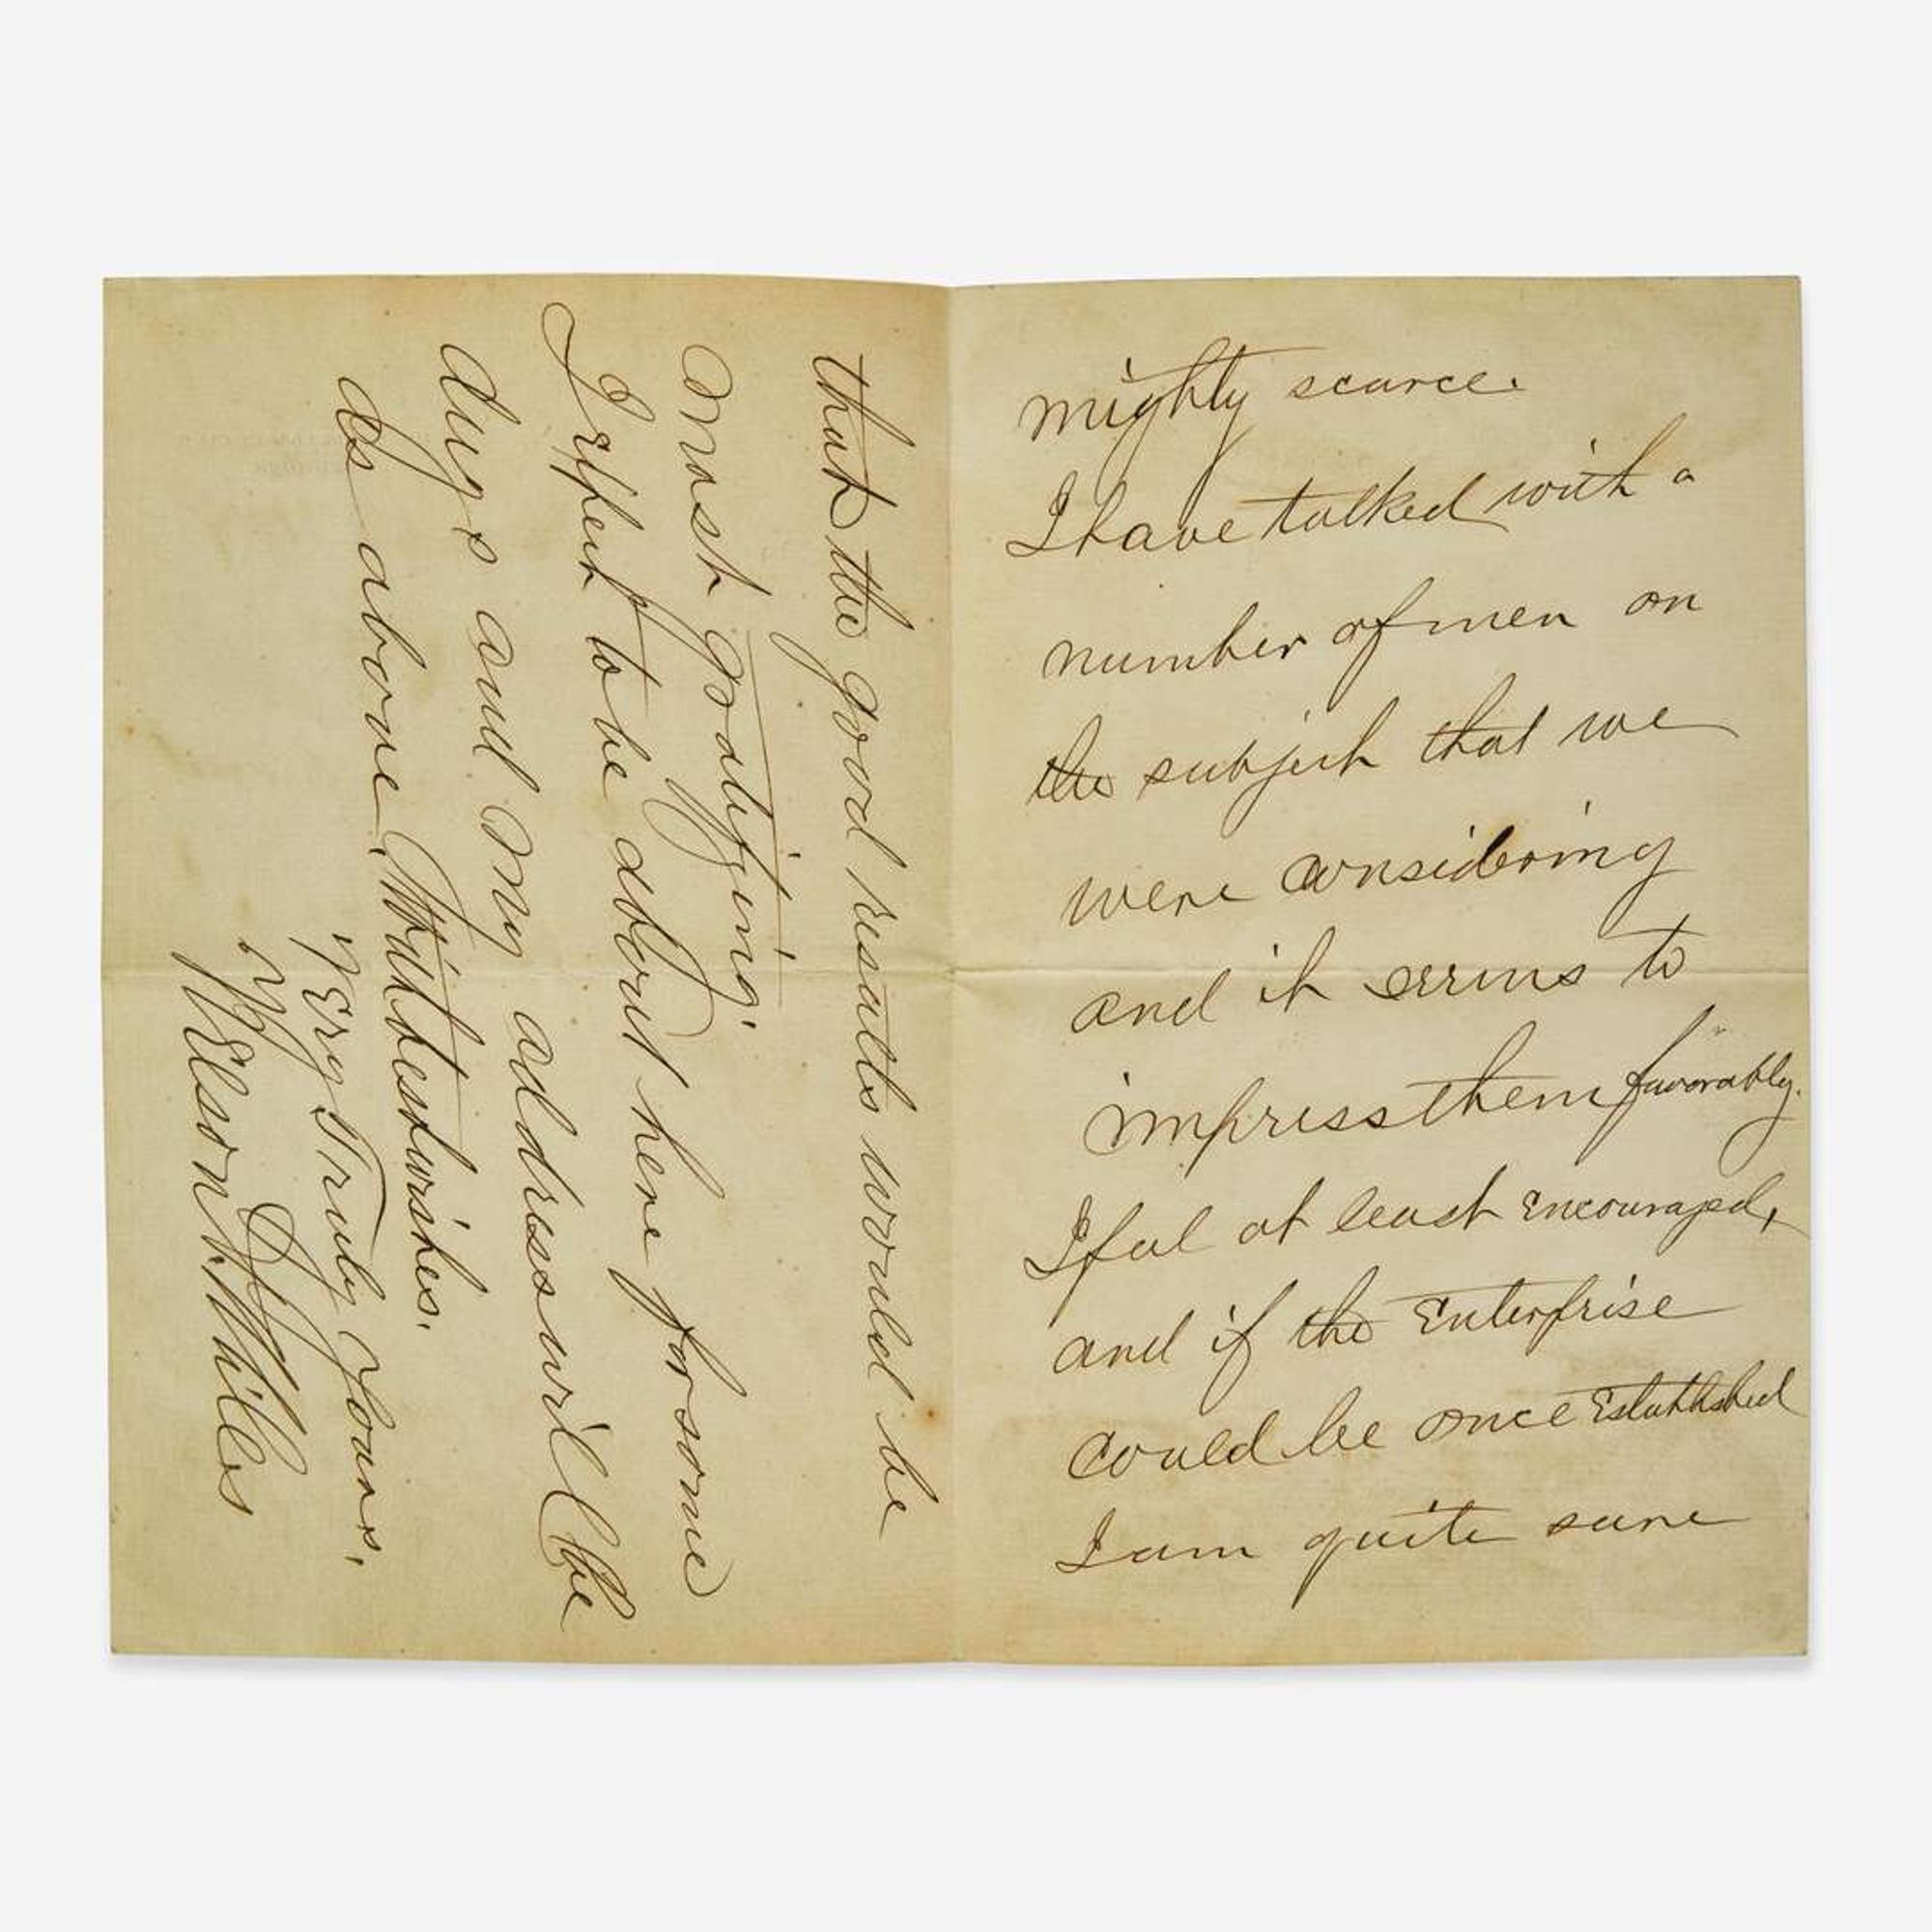 mighty scarce.
I have talked with a
number of men on
the subject that we
were considering
and it seems to
impress them favorably.
I feel at least Encouraged,
and if the Enterprise
could be once Established
I am quite sure
that the good results would be
most gratifying.
I expect to be about here for some
days and my address will be
as above. With best wishes.
Very Truly Yours,
Nelson A. Miles